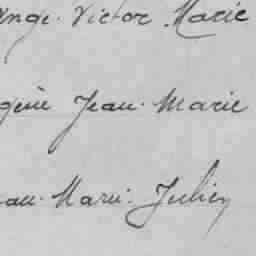 Ange. Victor Marie
gène Jean. Marie
ean. Marie. Julien